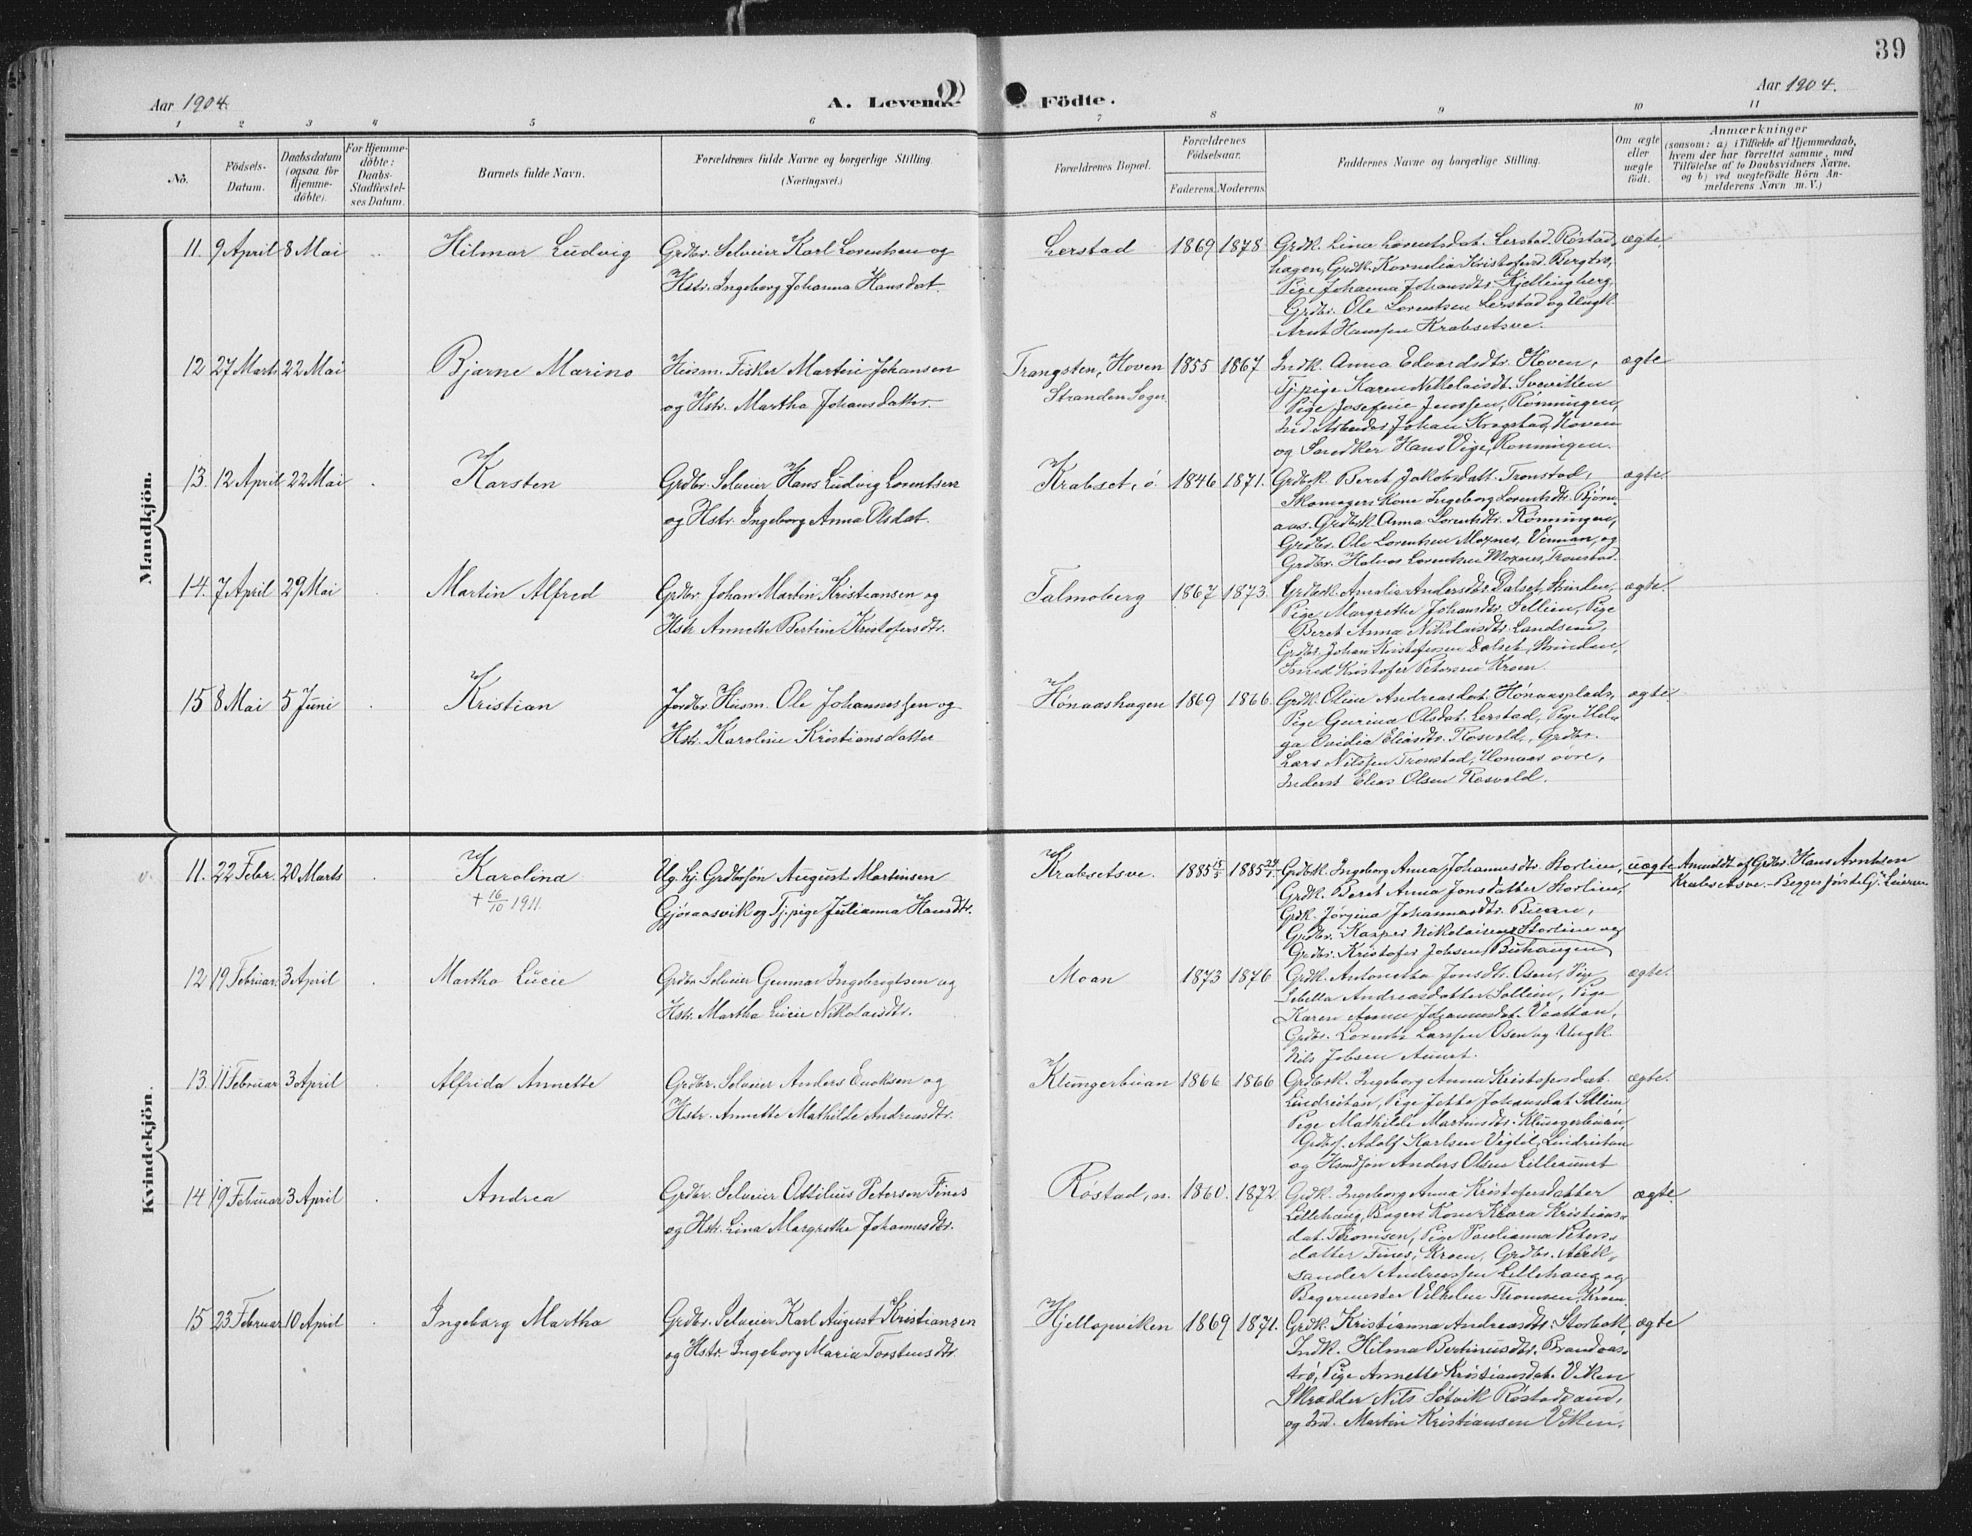 39
Aar 1904.
A. Levende Födte.
Aar 1904.
1 2 3 4 5 6 7 8 9 10 11
No.
Födsels-
Datum.
Daabsdatum
(ogsaa for
Hjemme-
döbte).
For Hjemme-
döbte:
Daabs-
Stadfæstel-
ses Datum.
Barnets fulde Navn.
Forældrenes fulde Navne og borgerlige Stilling
(Næringsvei.)
Forældrenes Bopæl.
Forældrenes
Födselsaar.
Faderens. Moderens.
Faddernes Navne og borgerlige Stilling.
Om ægte
eller
uægte
födt.
Anmærkninger
(saasom: a) i Tilfælde af Hjemmedaab,
hvem der har forrettet samme, med
Tilföielse af to Daabsvidners Navne.
og b) ved uægtefödte Börn An-
melderens Navn m. V.)
Mandkjön.
11. 9 April 8 Mai Hilmar Ludvig
Grdbr. Selveier Karl Lorentsen og
Hstr. Ingeborg Johanna Hansdat.
Lerstad 1869 1878
Grdk. Lina Lorentsdat. Lerstad, Røstad,
hagen, Grdk. Kornelia Kristofersd. Bergtrø,
Pige Johanna Johansdtr. Kjellingberg,
Grdbr. Ole Lorentsen Lerstad og Ungk.
Arnt Hansen Krabsetsve.
ægte
12 27 Marts 22 Mai Bjarne Marino
Husm. Fisker Martin Johansen
og Hstr. Martha Johansdatter.
Trangsten, Hoven
Stranden Sogn
1855 1867
Indk. Anna Edvardsdtr. Hoven,
Tj. pige Karen Nikolaisdt.
Pige Josefine Jenssen, Rønningen,
Ind. Arbeider Johan Krogstad, Hoven
og Snedker Hans Vige, Rønningen.
ægte
13. 12 April 22 Mai Karsten
Grdbr. Selveier Hans Ludvig Lorentsen
og Hstr. Ingeborg Anna Olsdat.
Krabset, ø 1846 1871.
Grdbrk. Beret Jakobsdatt. Tronstad,
Skomagers Kone Ingeborg Lorentsdtr. Bjørn-
aas. Grdbrk. Anna Lorentsdtr. Rønningen,
Grdbr. Ole Lorentsen Moxnes, Vinnan, og
Grdbr. Halvor Lorentsen Moxnes, Tronstad.
ægte.
14. 7 April 29 Mai Martin Alfred
Grdbr. Johan Martin Kristiansen og
Hstr. Annette Bertine Kristofersdtr.
Talmoberg 1867 1873.
Grdbrk. Amalia Andersdtr. Dalset, Strinden,
Pige Margrethe Johansdtr. Sellien, Pige
Beret Anna Nikolaisdtr. Landsem,
Grdbr. Johan Kristofersen Dalset, Strinden,
Smed Kristofer Petersen Kroen.
ægte.
15 8 Mai 5 Juni Kristian
Jordbr. Husm. Ole Johannessen og
Hstr. Karoline Kristiansdatter
Hønaashagen 1869 1866.
Grdk. Oline Andreasdat. Hønaasplads,
Pige Gurina Olsdat. Lerstad, Pige Hel-
ga Ovidia Eliasdtr. Rosvold, Grdbr.
Lars Nilssen Tronstad, Hønaas øvre,
Inderst Elias Olsen Rosvold.
ægte.
Kvindekjön.
11. 22 Febr. 20 Marts Karolina
+ 16/10 1911.
Ug. hj. Grdbrsøn August Martinsen
Gjøraasvik og Tj. pige Julianna Hansdtr.
Krabsetsve. 1885 15/5 1885 24/1
Grdbk. Ingeborg Anna Johannesdtr. Storlien,
Grdk. Beret Anna Jonsdatter Storlien,
Grdk. Jørgina Johannesdtr. Buan,
Grdbr. Kasper Nikolaisen Storlien og
Grdbr. Kristofer Jobsen Buhaugen
uægte
Anmeldt af Grdbr. Hans Arntsen
Krabsetsve. Begges første
12 19 Februar. 3 April Martha Lucie
Grdbr. Selveier Gunnar Ingebrigtsen og
Hstr. Martha Lucie Nikolaisdtr.
Moan 1873 1876
Grdk. Antonetta Jonsdtr. Osen, Pige
Sebella Andreasdatter Sollien, Pige
Karen Anna Johannesdat. Vaattan,
Grdbr. Lorents Larssen Osen og Ungk.
Nils Jobsen Aunet.
ægte.
13. 11 Februar 3 April Alfrida Annette
Grdbr. Selveier Anders Enoksen og
Hstr. Annette Mathilde Andreasdtr.
Klungerbuan 1866 1866
Grdbrk. Ingeborg Anna Kristofersdat.
Lindreitan, Pige Jette Johansdat. Sellien
Pige Mathilde Martinsdtr. Klungerbuan,
Grdbr. Adolf Karlsen Vigtil, Lindreitan
og Husmdsøn Anders Olsen Lilleaunet
ægte.
14 19 Februar 3 April Andrea
Grdbr. Selveier Ottilius Petersen Fines
og Hstr. Lina Margrethe Johannesdtr.
Røstad, n. 1860. 1872.
Grdk. Ingeborg Anna Kristofersdatter
Lillehaug, Bagers Kone Klara Kristians-
dat. Thomsen, Pige Paulianna Peters-
datter Fines, Kroen, Grdbr. Alek-
sander Andreassen Lillehaug og
Bagermester Vilhelm Thomsen, Kroen
ægte.
15 23 Februar 10 April Ingeborg Martha
Grdbr. Selveier Karl August Kristiansen
og Hstr. Ingeborg Maria Torstensdtr.
Hjellopviken 1869 1871.
Grdk. Kristianna Andreasdtr. Storholt,
Indk. Hilma Bertinusdtr. Brandaas-
trø, Pige Annette Kristiansdat. Viken
Skrædder Nils Søtvik Røstadsand,
og Ind. Martin Kristiansen Viken.
ægte